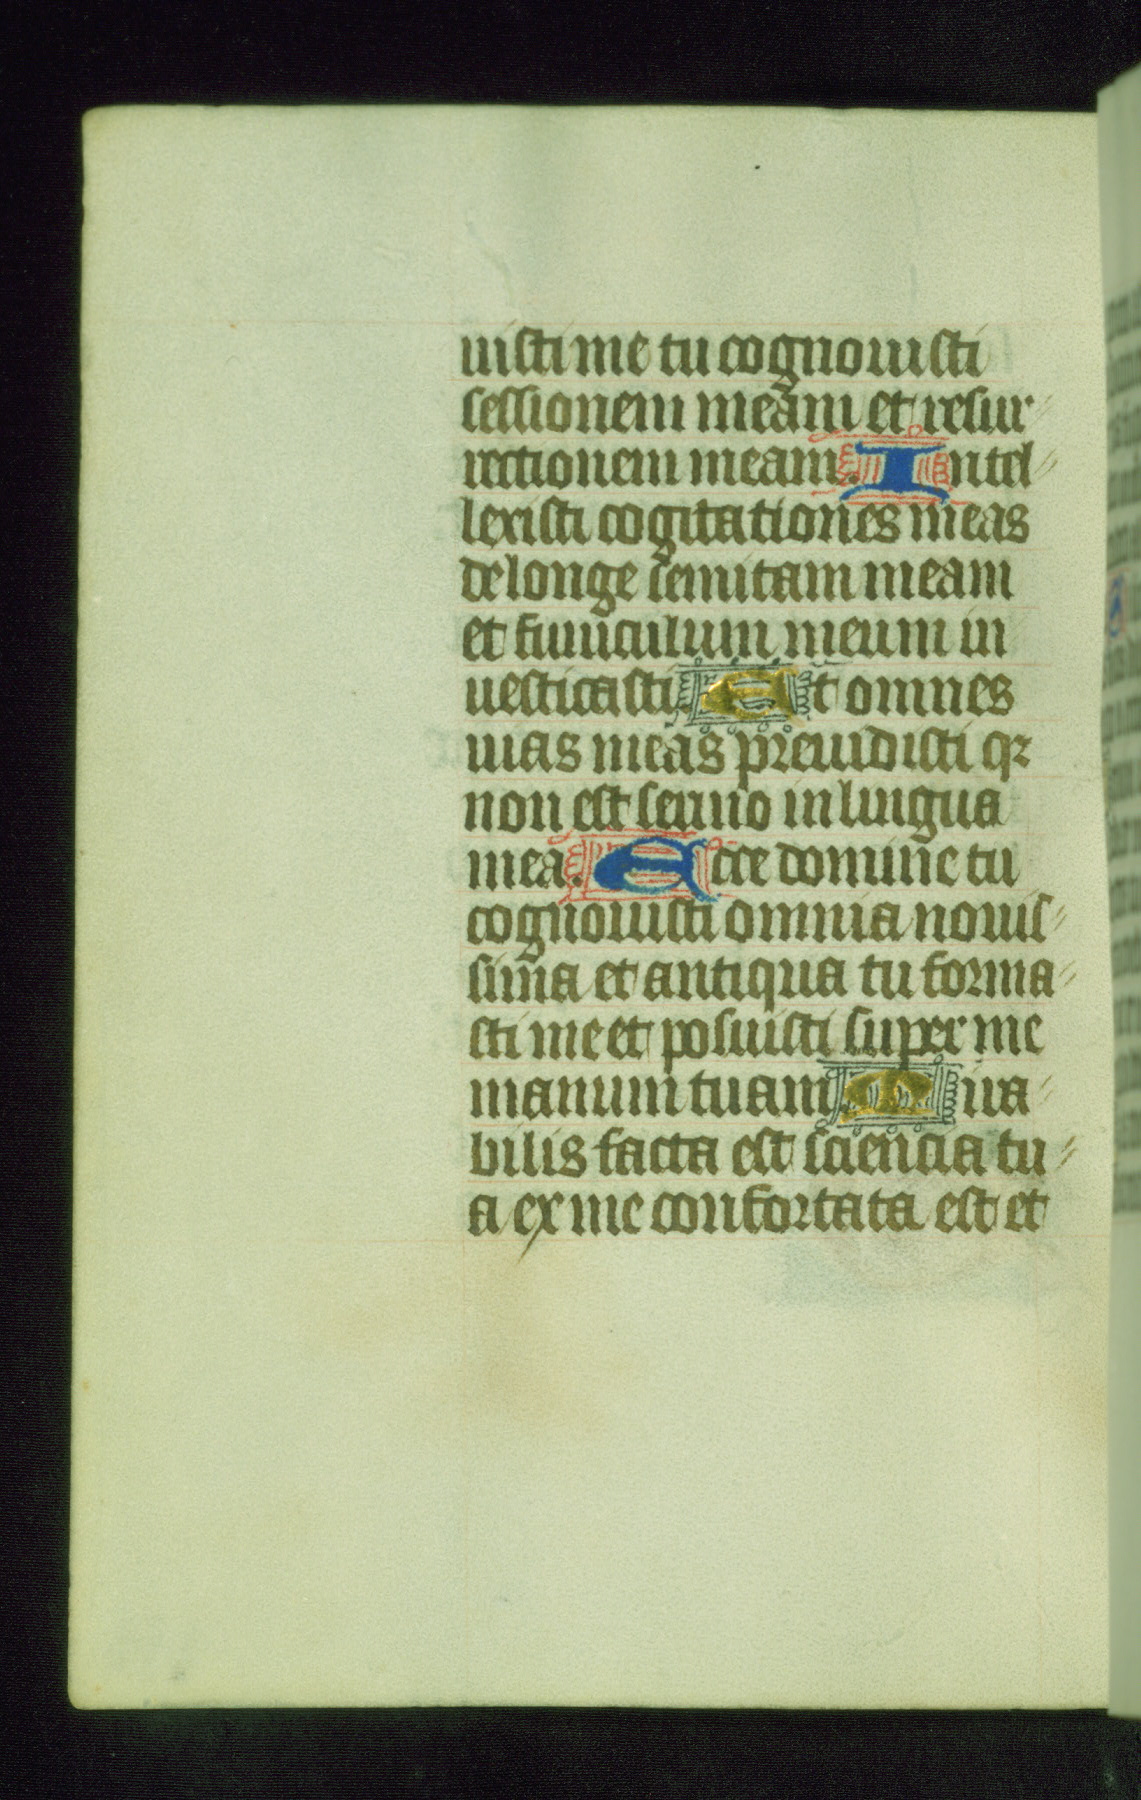 uisti me tu cognouisti
sessionem meam et resur
rectionem meam. Intel
lexisti cogitationes meas
de longe semitam meam
et funiculum meum in
uesticasti. Et omnes
uias meas preuidisti qꝛ
non est sermo in lingua
mea. Ecce domine tu
cognouisti omnia nouis
sima et antiqua tu forma
sti me et posuisti super me
manum tuam. Mira
bilis facta est sciencia tu
a ex me confortata est et